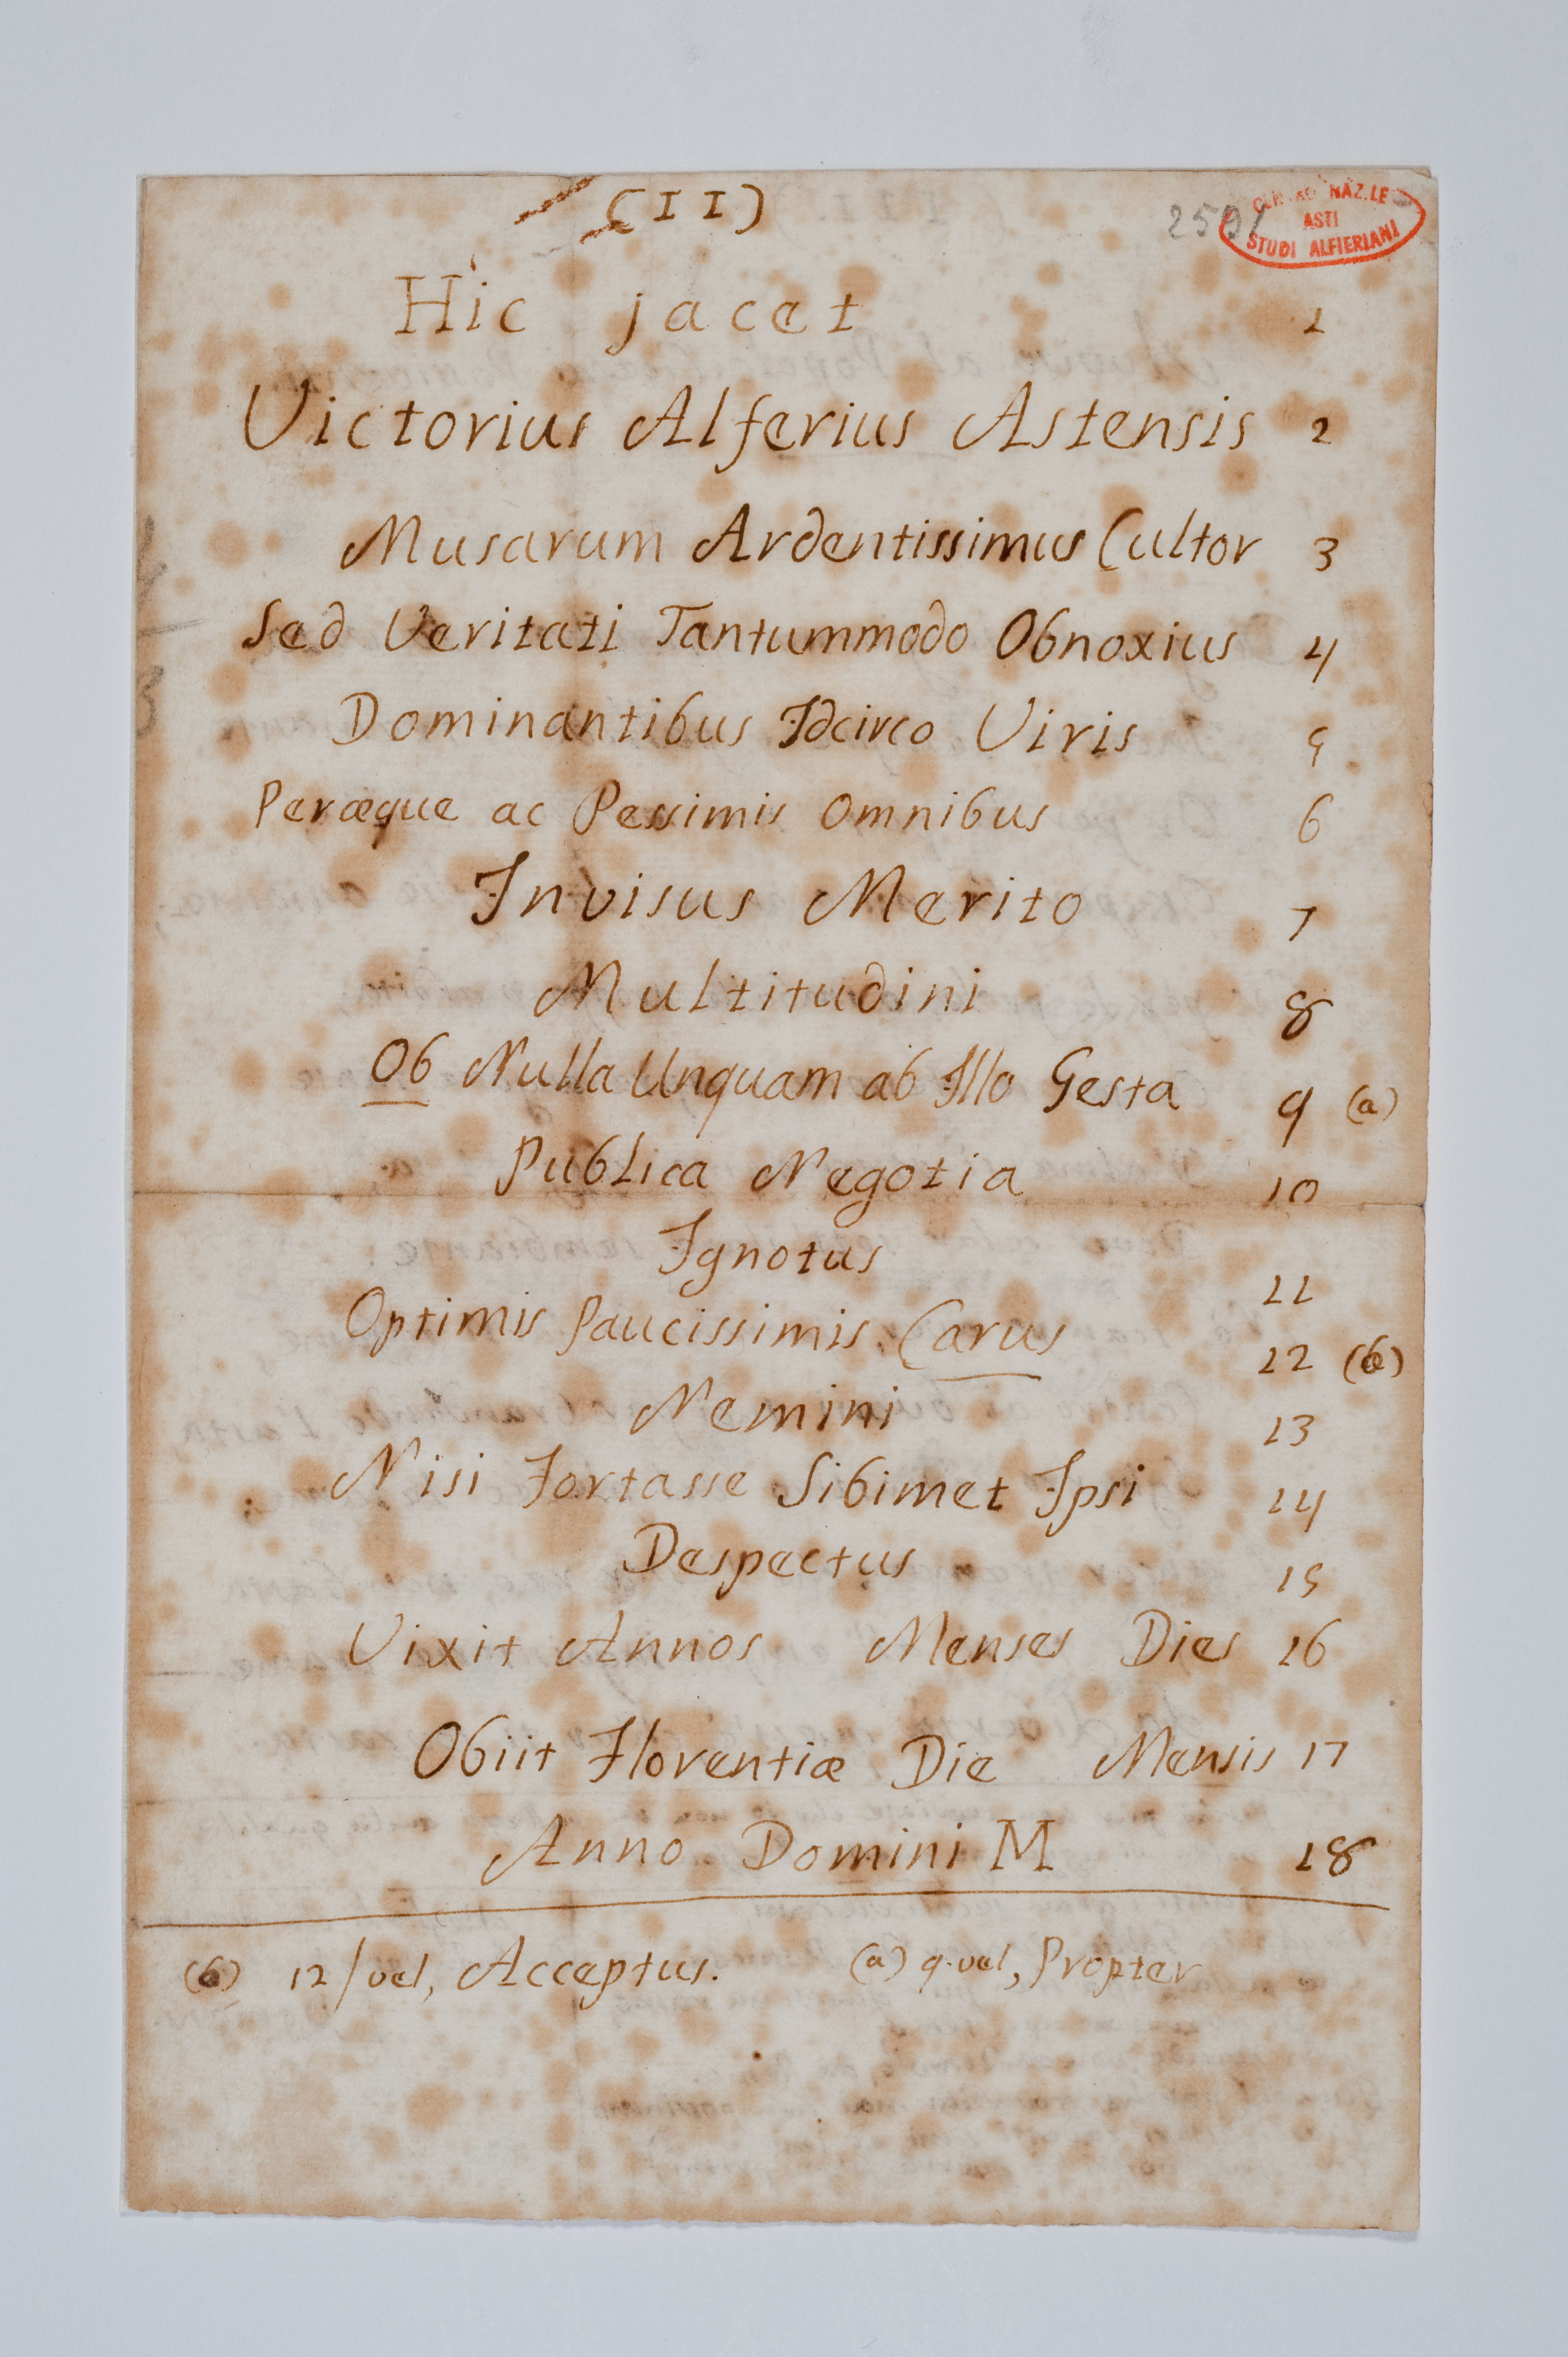 (II)
2591
CENTRO NAZ.LE
ASTI
STUDI ALFIERIANI
Hic jacet 1
Victorius Alferius Astensis 2
Musarum Ardentissimus Cultor 3
Sed Veritati Tantummodo Obnoxius 4
Dominantibus Idcirco Viris 5
Peræque ac Pessimis Omnibus 6
Invisus Merito 7
Multitudini 8
Ob Nulla Unquam ab Illo Gesta 9 (a)
Publica Negotia 10
Ignotus 11
Optimis Paucissimis Carus 12 (b)
Nemini 13
Nisi Fortasse Sibimet Ipsi 14
Despectus 15
Vixit Annos Menses Dies 16
Obiit Florentiæ Die Mensis 17
Anno Domini M 18
(b) 12/vel, Acceptus. (a) 9. vel, Propter